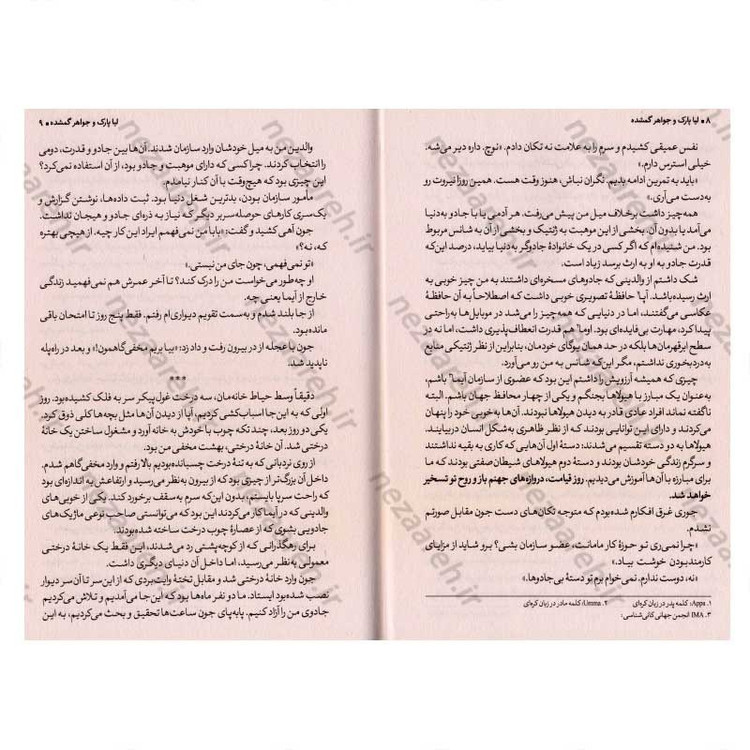 ۸ • لیا پارک و جواهر گمشده
نفس عمیقی کشیدم و سرم را به علامت نه تکان دادم. «نوچ. داره دیر می‌شه.
خیلی استرس دارم.»
«باید به تمرین ادامه بدیم. نگران نباش، هنوز وقت هست. همین روزا نیروت رو
به‌دست می‌آری.»
همه‌چیز داشت برخلاف میل من پیش می‌رفت. هر آدمی یا با جادو به‌دنیا
می‌آمد یا بدون آن. بخشی از این موهبت به ژنتیک و بخشی از آن به شانس مربوط
بود. من شنیده‌ام که اگر کسی در یک خانوادهٔ جادوگر به‌دنیا بیاید، درصد این‌که
قدرت جادو به او به ارث برسد زیاد است.
شک داشتم از والدینی که جادوهای مسخره‌ای داشتند به من چیز خوبی به
ارث رسیده‌باشد. آپا۱ حافظهٔ تصویری خوبی داشت که اصطلاحاً به آن حافظهٔ
عکاسی می‌گفتند، اما در دنیایی که همه‌چیز را می‌شد در موبایل‌ها به‌راحتی
پیدا کرد، مهارت بی‌فایده‌ای بود. اوما۲ هم قدرت انعطاف‌پذیری داشت، اما نه در
سطح ابرقهرمان‌ها بلکه در حد همان یوگای خودمان، بنابراین از نظر ژنتیکی منابع
به‌دردبخوری نداشتم، مگر این‌که شانس به من رو می‌آورد.
چیزی که همیشه آرزویش را داشتم این بود که عضوی از سازمان آیما۳ باشم،
به‌عنوان یک مبارز با هیولاها بجنگم و یکی از چهار محافظ جهان باشم. البته
ناگفته نماند افراد عادی قادر به دیدن هیولاها نبودند. آن‌ها به‌خوبی خود را پنهان
می‌کردند و دارای این توانایی بودند که از نظر ظاهری به‌شکل انسان دربیایند.
هیولاها به دو دسته تقسیم می‌شدند: دستهٔ اول آن‌هایی که کاری به بقیه نداشتند
و سرگرم زندگی خودشان بودند و دستهٔ دوم هیولاهای شیطان‌صفتی بودند که ما
برای مبارزه با آن‌ها آموزش می‌دیدیم. روز قیامت، دروازه‌های جهنم باز و روح تو تسخیر
خواهد شد.
جوری غرق افکارم شده‌بودم که متوجه تکان‌های دست جون مقابل صورتم
نشدم.
«چرا نمی‌ری تو حوزهٔ کار مامانت، عضو سازمان بشی؟ برو شاید از مزایای
کارمندبودن خوشت بیاد.»
«نه، دوست ندارم. نمی‌خوام برم تو دستهٔ بی‌جادوها.»
۱. Appa: کلمه پدر در زبان کره‌ای ۲. Umma: کلمه مادر در زبان کره‌ای
۳. IMA انجمن جهانی کانی‌شناسی:
لیا پارک و جواهر گمشده • ۹
والدین من به میل خودشان وارد سازمان شدند. آن‌ها بین جادو و قدرت، دومی
را انتخاب کردند. چرا کسی که دارای موهبت و جادو بود، از آن استفاده نمی‌کرد؟
این چیزی بود که هیچ‌وقت با آن کنار نیامدم.
مأمور سازمان بودن، بدترین شغل دنیا بود. ثبت داده‌ها، نوشتن گزارش و
یک‌سری کارهای حوصله‌سربر دیگر که نیاز به ذره‌ای جادو و هیجان نداشت.
جون آهی کشید و گفت: «بابا من نمی‌فهمم ایراد این کار چیه. از هیچی بهتره
که، نه؟»
«تو نمی‌فهمی، چون جای من نیستی.»
او چه‌طور می‌خواست من را درک کند؟ تا آخر عمرش هم نمی‌فهمید زندگی
خارج از آیما یعنی چه.
از جا بلند شدم و به‌سمت تقویم دیواری‌ام رفتم. فقط پنج روز تا امتحان باقی
مانده‌بود.
جون با عجله از در بیرون رفت و داد زد: «بیا بریم مخفی‌گاهمون!» و بعد در راه‌پله
ناپدید شد.
***
دقیقاً وسط حیاط خانه‌مان، سه درخت غول‌پیکر سر به فلک کشیده‌بود. روز
اولی که به این‌جا اسباب‌کشی کردیم، آپا از دیدن آن‌ها مثل بچه‌ها کلی ذوق کرد.
یکی دو روز بعد، چند تکه چوب با خودش به خانه آورد و مشغول ساختن یک خانهٔ
درختی شد. آن خانهٔ درختی، بهشت مخفی من بود.
از روی نردبانی که به تنهٔ درخت چسبانده‌بودیم بالا رفتم و وارد مخفی‌گاهم شدم.
داخل آن بزرگ‌تر از چیزی بود که از بیرون به‌نظر می‌رسید و ارتفاعش به اندازه‌ای بود
که راحت سرپا بایستم، بدون این‌که سرم به سقف برخورد کند. یکی از خوبی‌های
والدینی که در آیما کار می‌کردند این بود که می‌توانستی صاحب نوعی ماژیک‌های
جادویی بشوی که از عصارهٔ چوب درخت ساخته شده‌بودند.
برای رهگذرانی که از کوچه‌پشتی رد می‌شدند، این فقط یک خانهٔ درختی
معمولی به‌نظر می‌رسید، اما داخل آن دنیای دیگری داشت.
جون وارد خانهٔ درختی شد و مقابل تختهٔ وایت‌بردی که از این سر تا آن سر دیوار
نصب شده‌بود ایستاد. ما دو نفر ماه‌ها بود که این‌جا می‌آمدیم و تلاش می‌کردیم تا
جادوی من را آزاد کنیم. پابه‌پای جون ساعت‌ها تحقیق و بحث می‌کردیم به این
nezaareh.ir